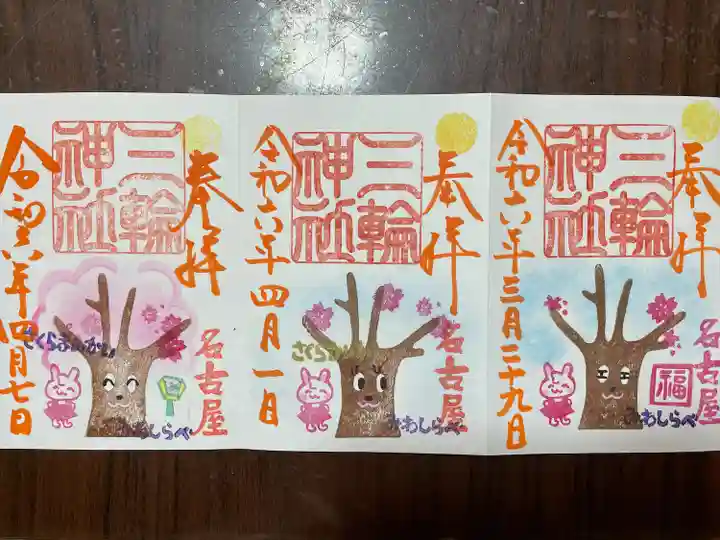 奉拝
三輪神社
令和六年三月二十九日
名古屋
福
みわしらべ
奉拝
三輪神社
令和六年四月一日
名古屋
さくら
みわしらべ
奉拝
三輪神社
令和六年四月七日
名古屋
さくらまんかい
みわしらべ